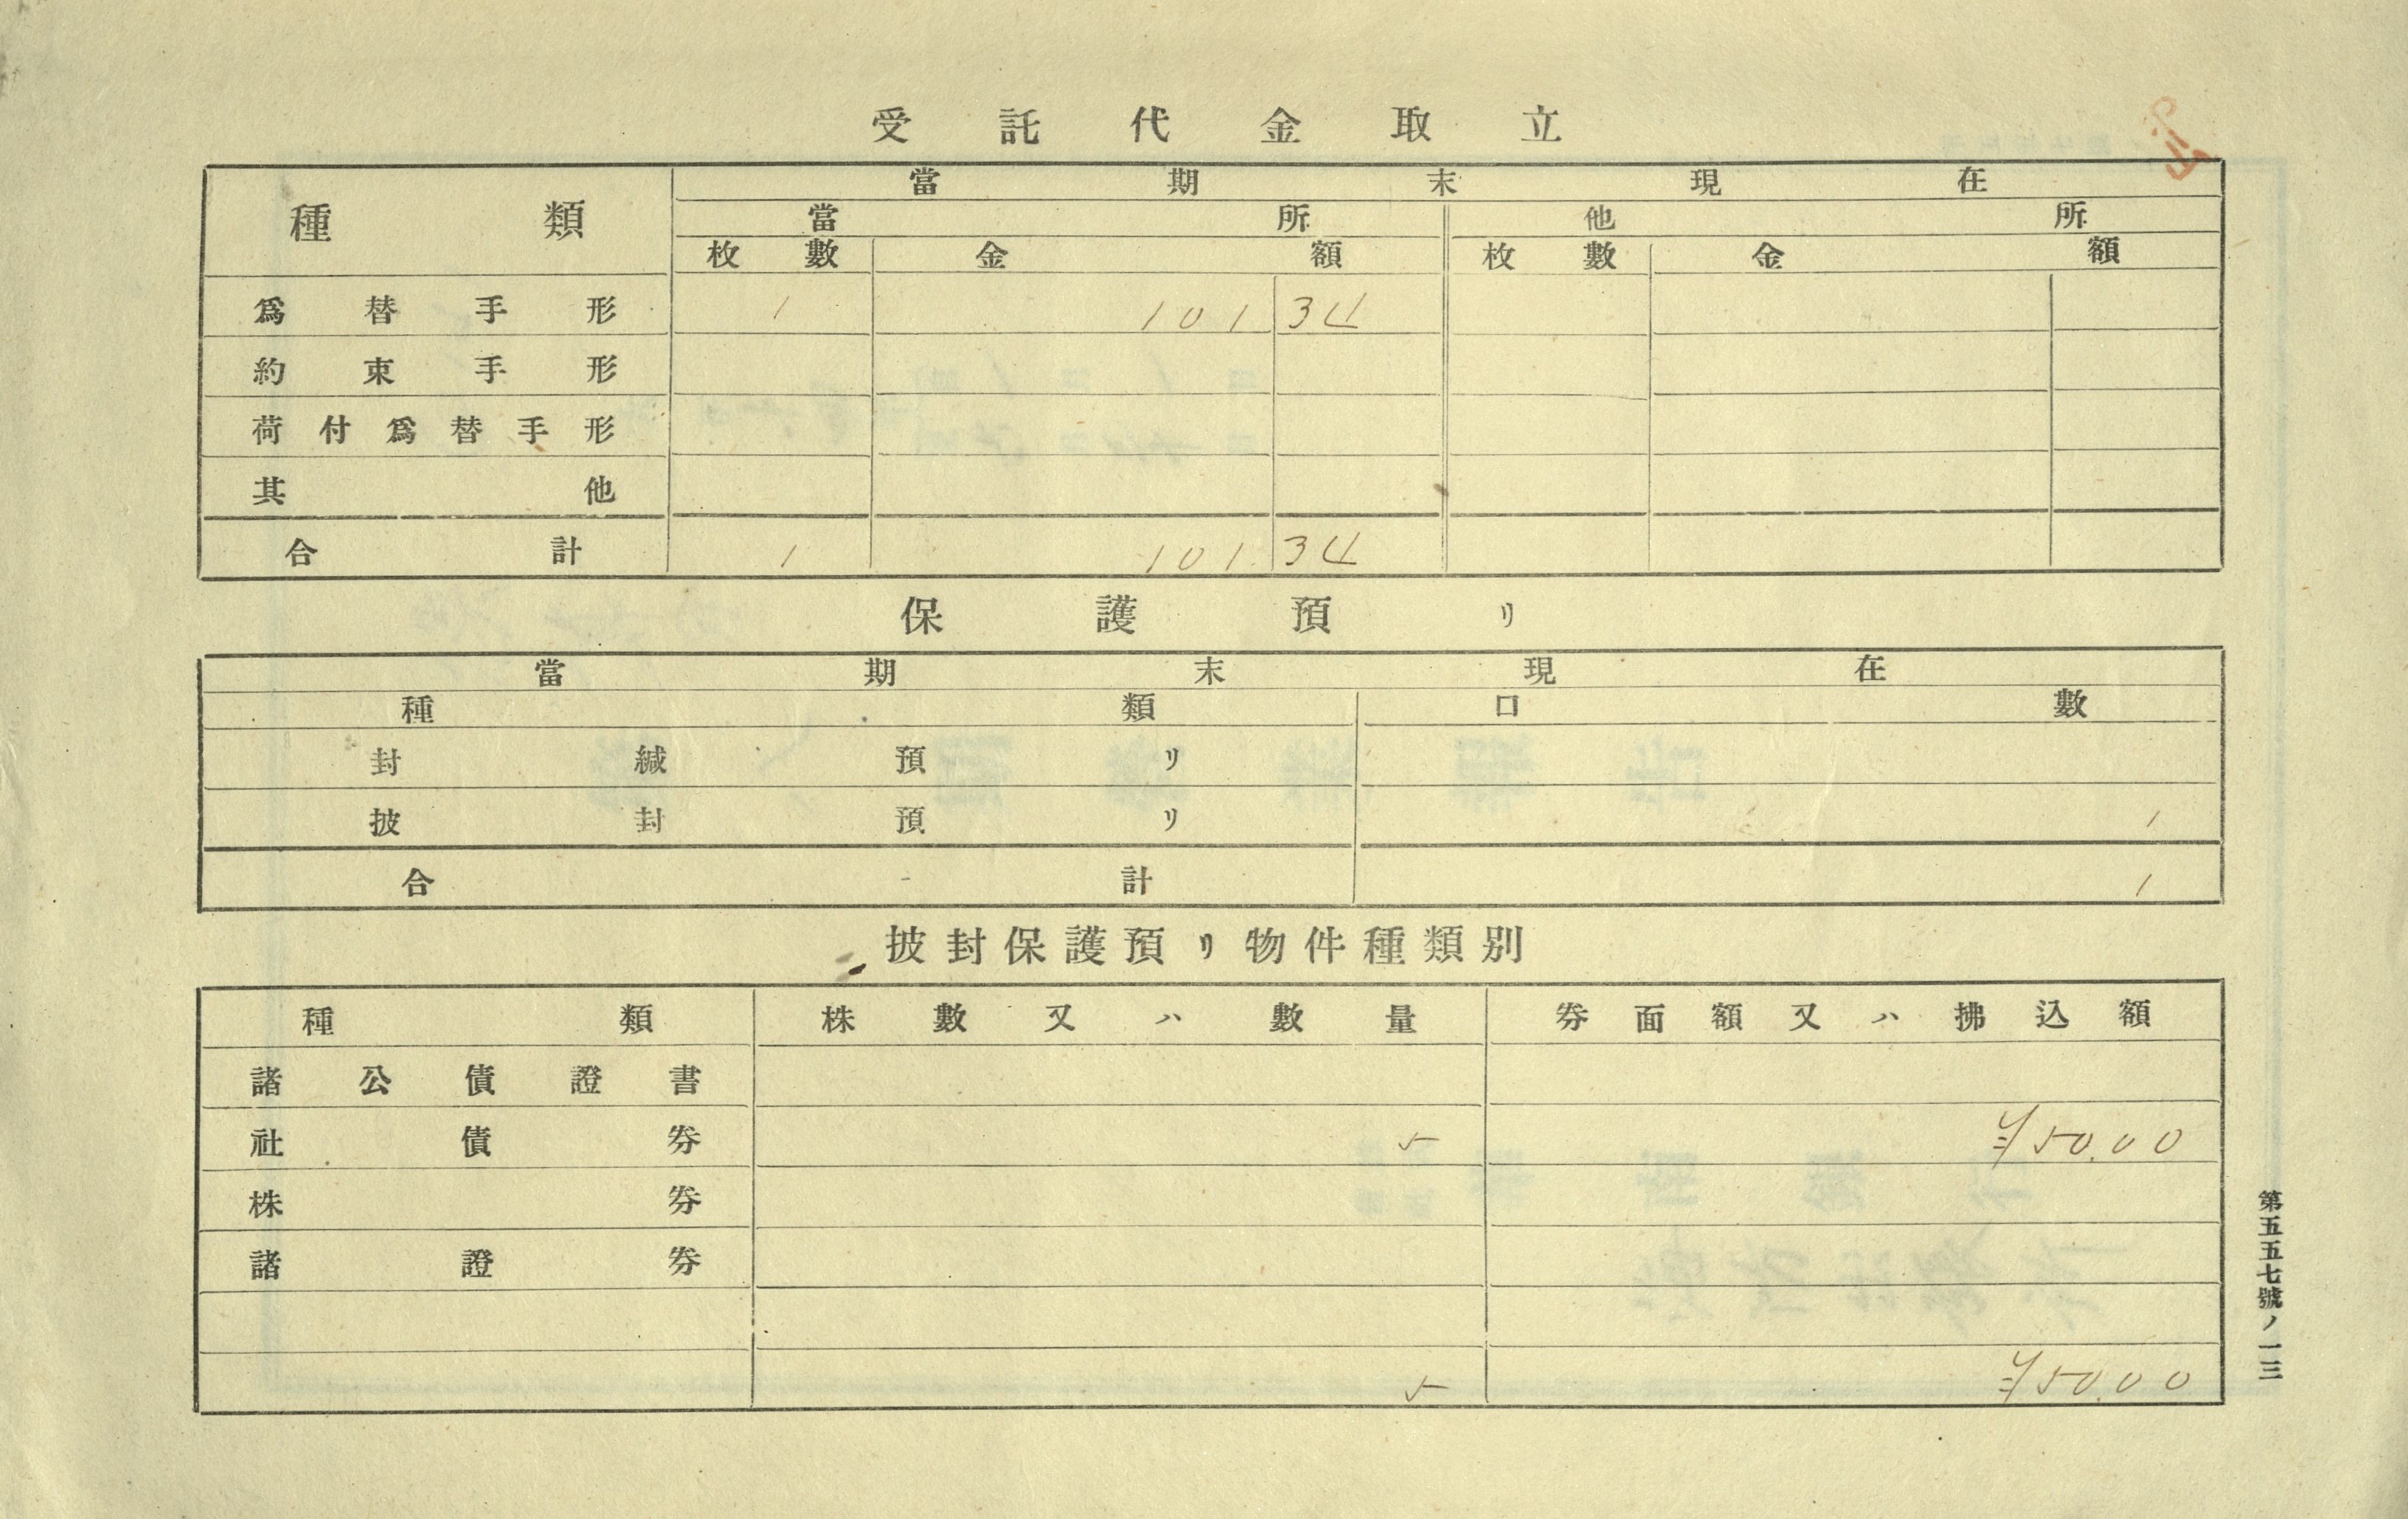 受託代金取立
種類 當期末現在
當所 他所
枚數 金額 枚數 金額
爲替手形 1 101 34
約束手形
荷付爲替手形
其他
合計 1 101 34
保護預リ
當期末現在
種類 口數
封緘預リ
披封預リ 1
合計 1
披封保護預リ物件種類別
種類 株數又ハ數量 券面額又ハ拂込額
諸公債證書
社債券 5 ¥50.00
株券
諸證券
5 ¥50.00
第五五七號ノ一三